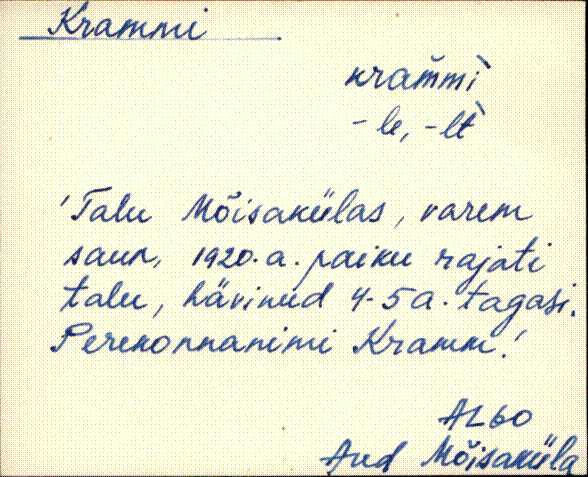 Krammi
kram̆mì
-le, -lt̀
'Talu Mõisakülas, varem
saun, 1920.a. paiku rajati
talu, hävinud 4-5 a. tagasi.
Perekonnanimi Kramm.'
AL60
Aud Mõisaküla